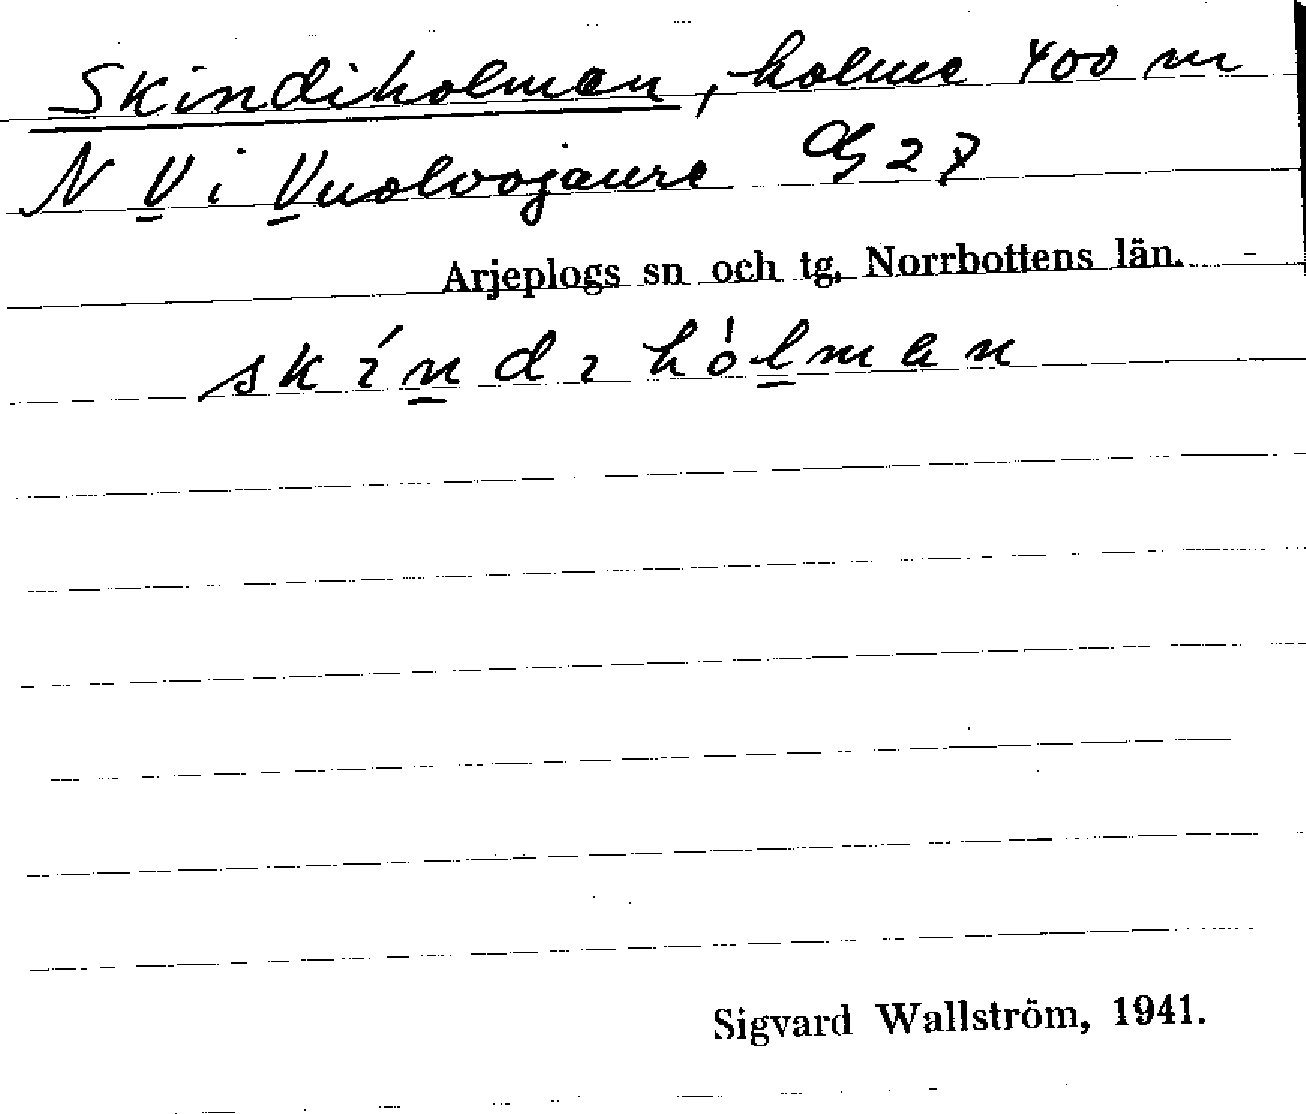 Skindiholmen, holme 400 m
N V i Vuolvojaure Cg 27
Arjeplogs sn och tg, Norrbottens län.
skíndɩ hó̍lmen
Sigvard Wallström, 1941.